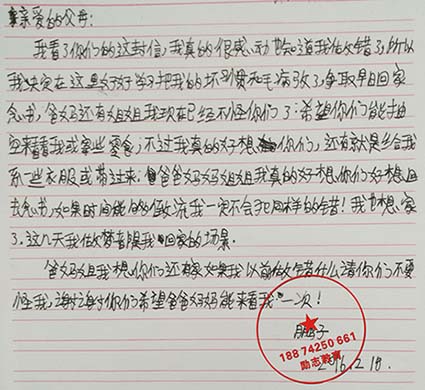 亲爱的父母:
我看了你们的这封信,我真的很感动也知道我做错了,所以
我决定在这里好好学习把我的坏习惯和毛病改了,争取早日回家
念书,爸妈还有姐姐我现在已经不怪你们了;希望你们能抽
空来看看我或拿些零食,不过我真的好想你们,还有就是给我
一些衣服或带过来.爸爸妈妈姐姐我真的好想你们好想回
去念书,如果时间能倒流我一定不会犯同样的错!我也想家
了.这几天我做梦都是我回家的场景.
爸妈姐我想你们还有家如果我以前做错什么请你们不要
怪我,谢谢你们希望爸爸妈妈能来看我一次!
子
188 7425 0661
励志教育
2016.12.18.